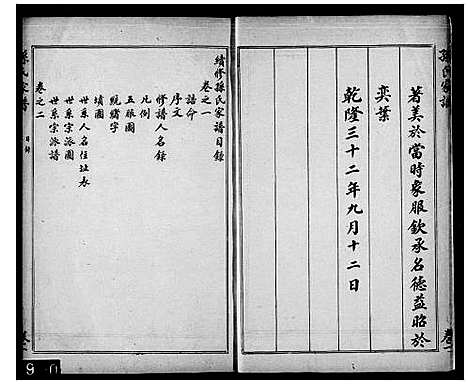 孫氏家譜
卷一
著美於當時象服欽承名德益昭於
奕葉
乾隆三十二年九月十二日
續修孫氏家譜目錄
卷之一
誥命
序文
修譜人名錄
凡例
五服圖
統緒字
墳圖
世系人名住址衣
世系宗派圖
世系宗派譜
卷之二
孫氏家譜
目錄